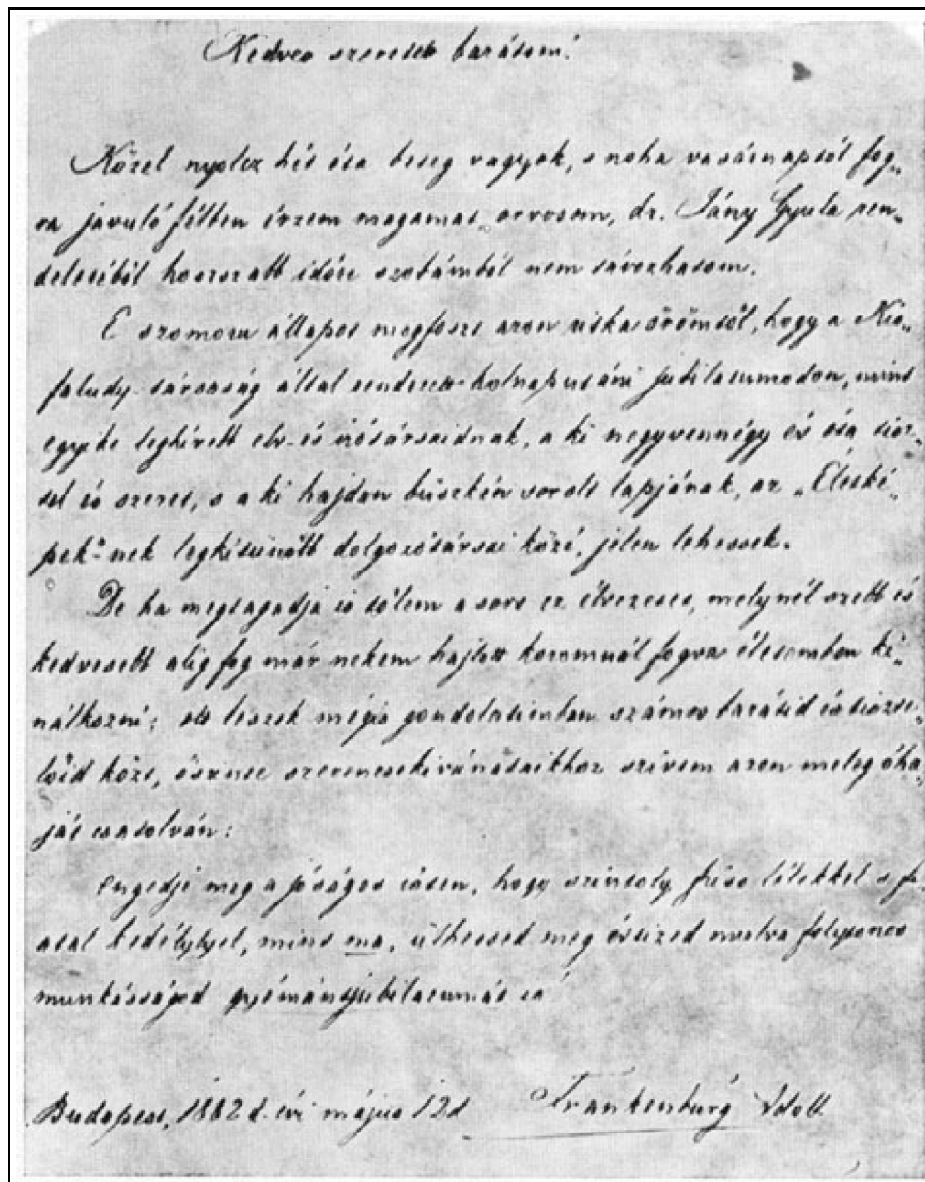 Kedves szeretett barátom!
Közel nyolcz hét óta beteg vagyok, s noha vasárnaptól fog-
va javuló félben érzem magamat, orvosom, dr. Jány Gyula ren-
deletéből hosszabb időre szobámból nem távozhatom.
E szomoru állapot megfoszt azon ritka örömtől, hogy a Kis-
faludy-társaság által rendezett holnaputáni jubilaeumodon, mint
egyike leghívebb elv- és írótársaidnak, a ki negyvennégy év óta tisz-
tel és szeret, s a ki hajdan büszkén sorolt lapjának, az „Életké-
pek"-nek legkitünőbb dolgozótársai közé, jelen lehessek.
De ha megtagadja is tőlem a sors ez élvezetet, melynél szebb és
kedvesebb alig fog már nekem hajlott koromnál fogva életemben kí-
nálkozni; ott leszek mégis gondolatimban számos barátid és tisz­te-
lőid közt, őszinte szerencsekivánataikhoz szívem azon meleg óha-
ját csatolván:
engedje meg a jóságos isten, hogy szintoly friss lélekkel s fi-
atal kedélylyel, mint ma, ülhessed meg évtized mulva folytonos
munkásságod gyémántjubilaeumát is!
Budapest, 1882 d. évi május 12d Frankenburg Adolf